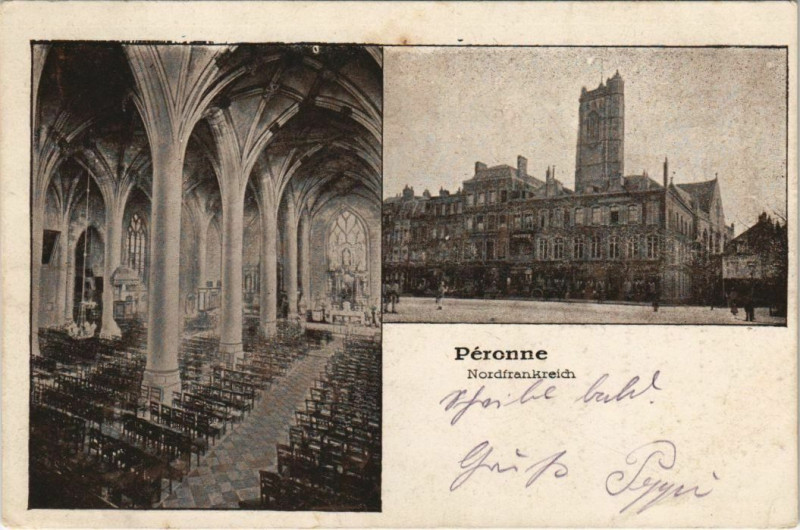 Péronne
Nordfrankreich
Schreibe bald!
Gruß Peppi